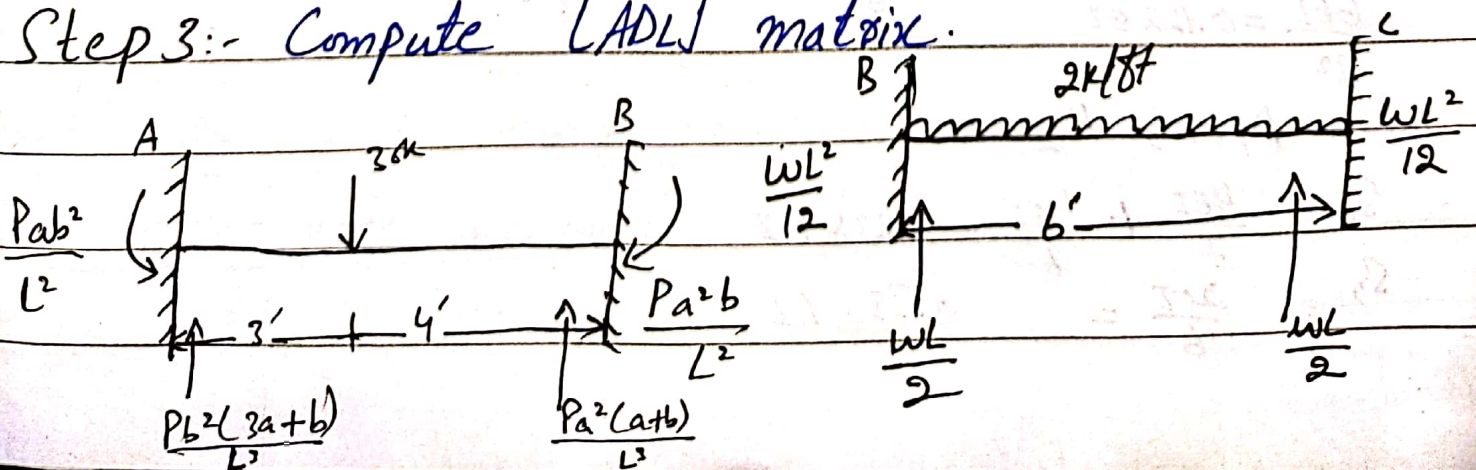 Step 3:- Compute [ADL] matrix.
A
30k
B
Pab²/L²
Pa²b/L²
3'
4'
Pb²(3a+b)/L³
Pa²(a+b)/L³
B
2k/ft
C
WL²/12
WL²/12
6'
WL/2
WL/2